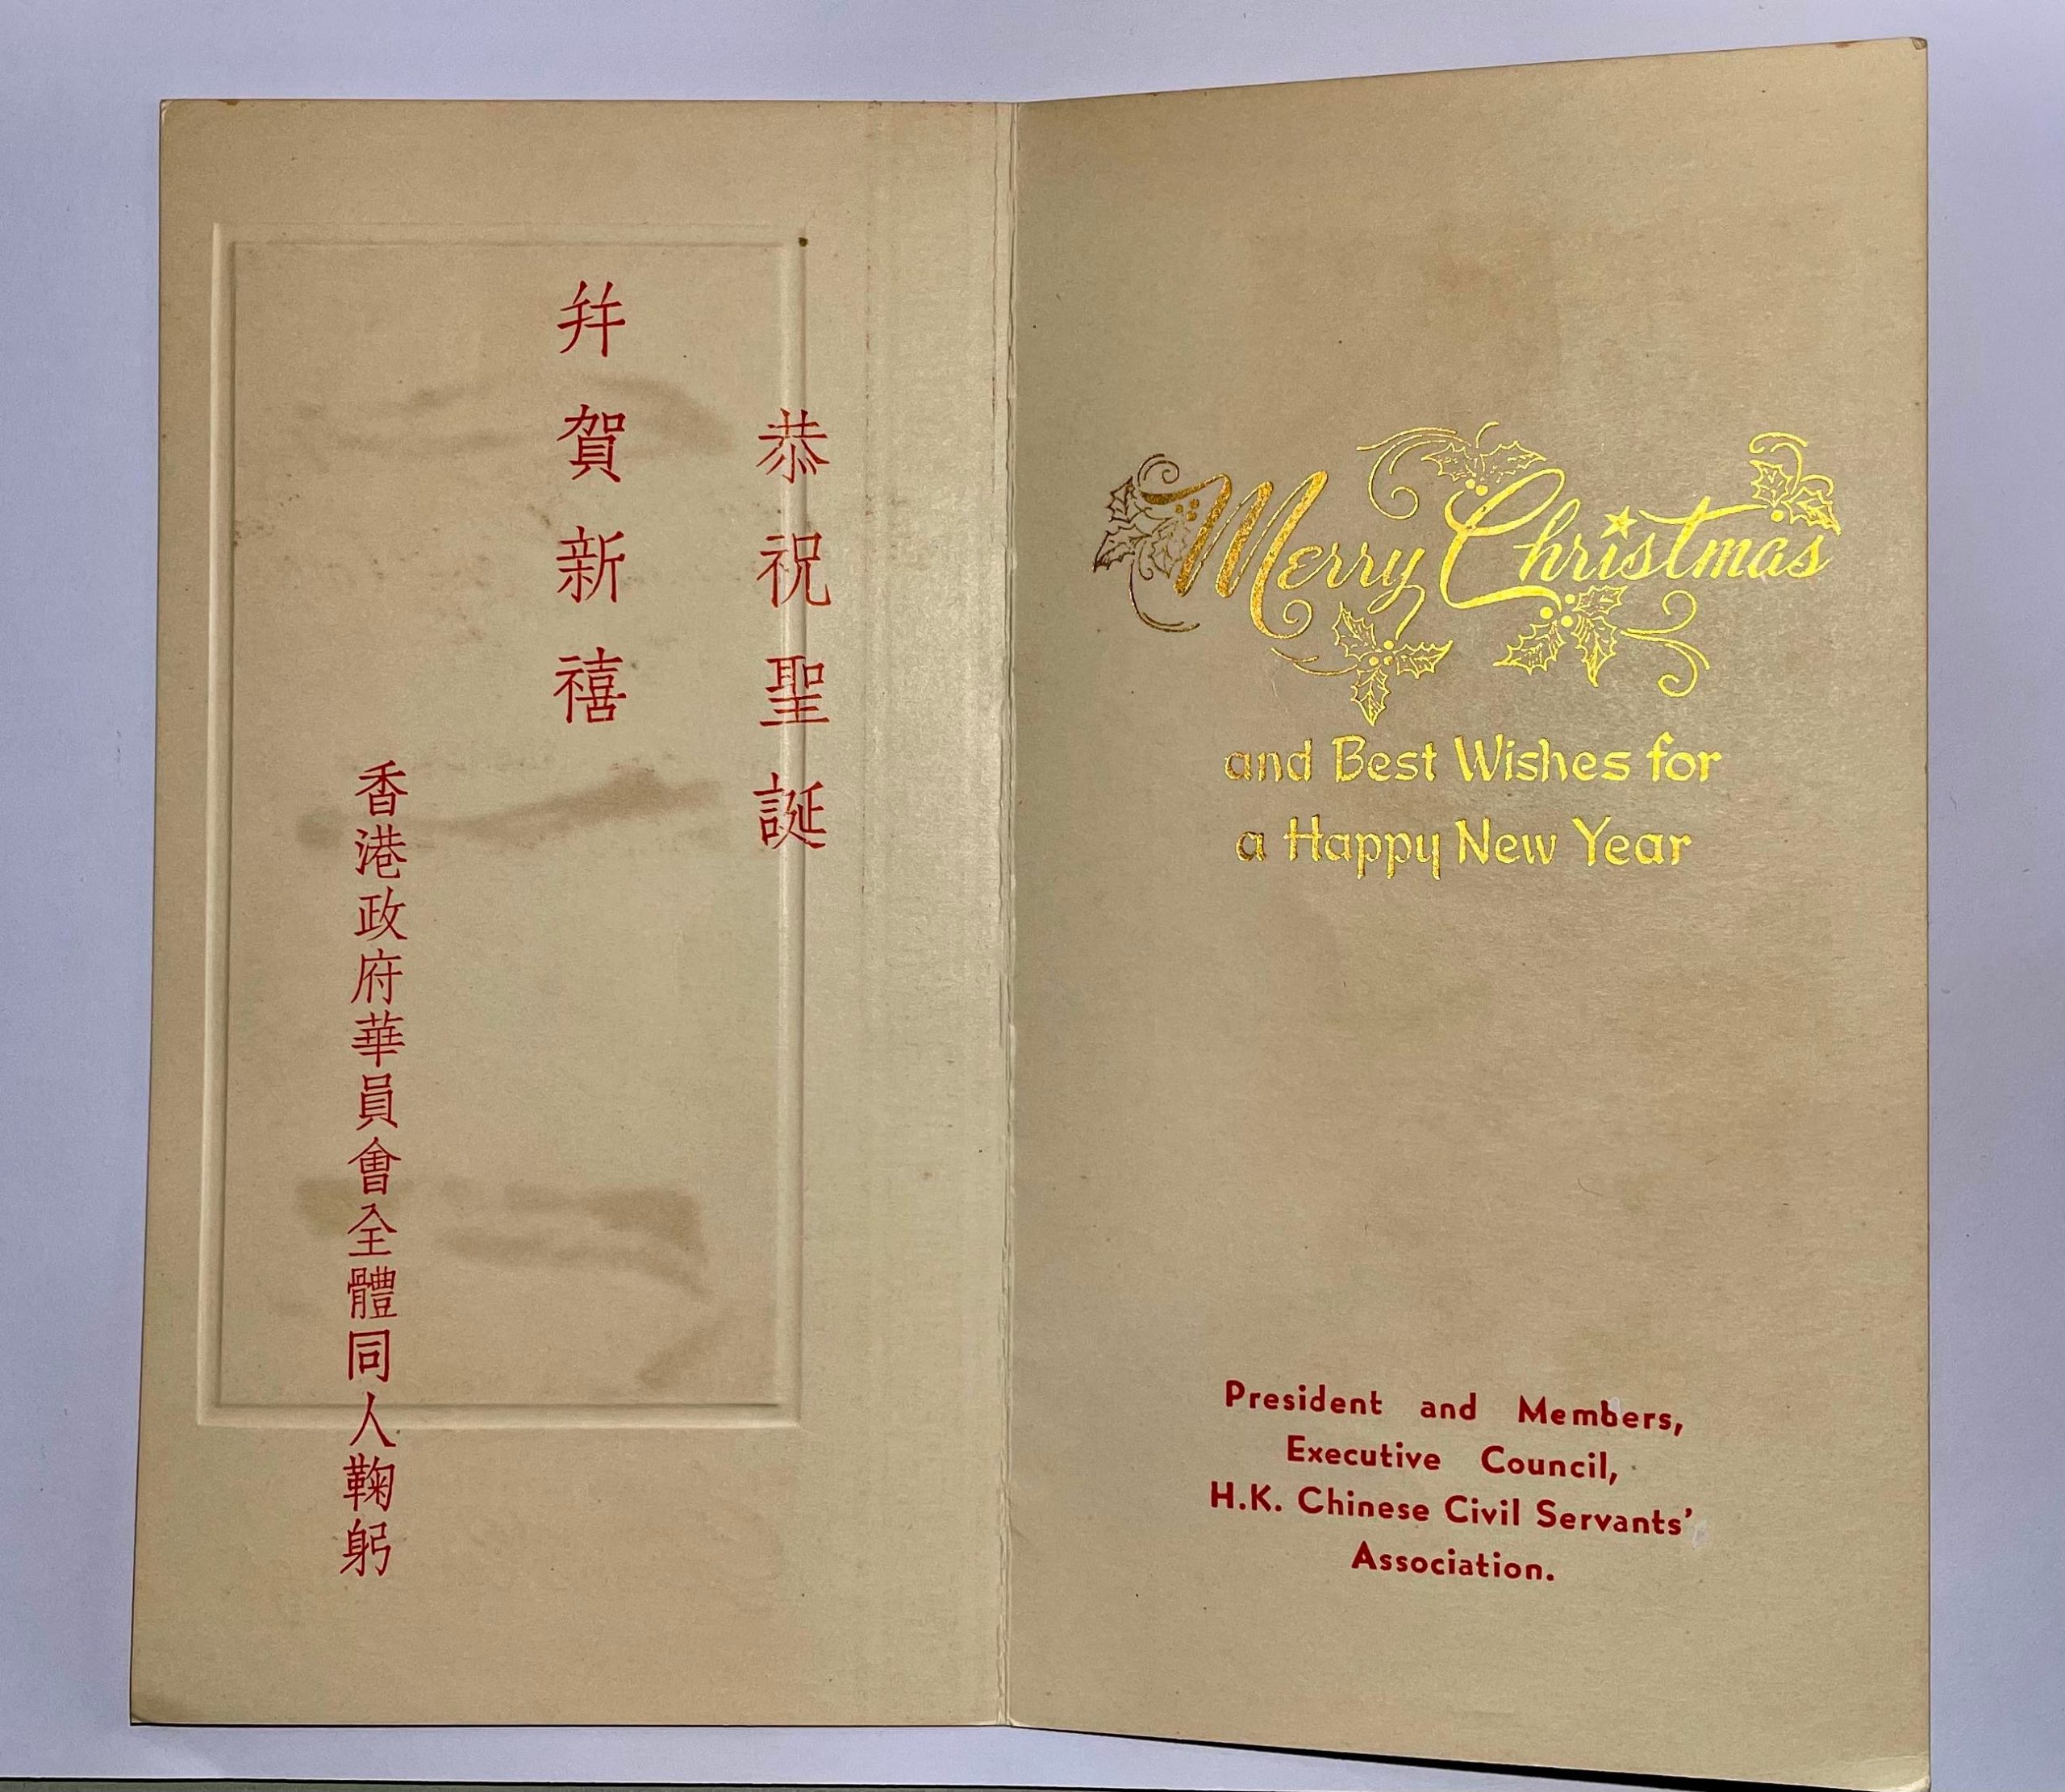 恭祝聖誕
并賀新禧
香港政府華員會全體同人鞠躬
Merry Christmas
and Best Wishes for
a Happy New Year
President and Members,
Executive Council,
H.K. Chinese Civil Servants'
Association.